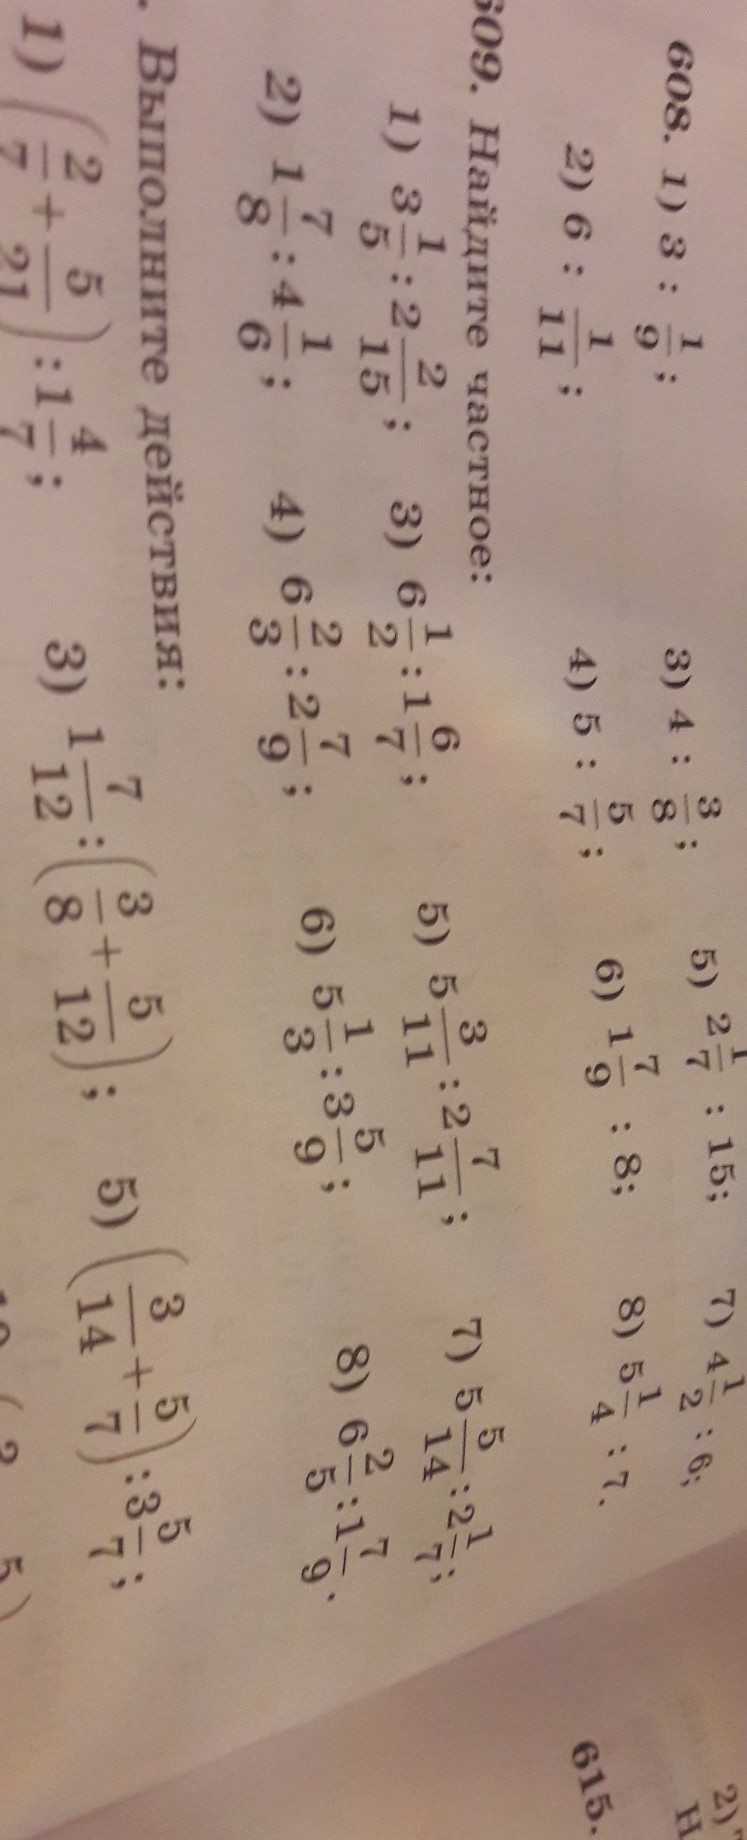 608. 1) 3 : 1/9; 3) 4 : 3/8; 5) 2 1/7 : 15; 7) 4 1/2 : 6;
2) 6 : 1/11; 4) 5 : 5/7; 6) 1 7/9 : 8; 8) 5 1/4 : 7.
609. Найдите частное:
1) 3 1/5 : 2 2/15; 3) 6 1/2 : 1 6/7; 5) 5 3/11 : 2 7/11; 7) 5 5/14 : 2 1/7;
2) 1 7/8 : 4 1/6; 4) 6 2/3 : 2 7/9; 6) 5 1/3 : 3 5/9; 8) 6 2/5 : 1 7/9.
. Выполните действия:
1) (2/7 + 5/21) : 1 4/7; 3) 1 7/12 : (3/8 + 5/12); 5) (3/14 + 5/7) : 3 5/7;
2)
Н
615.